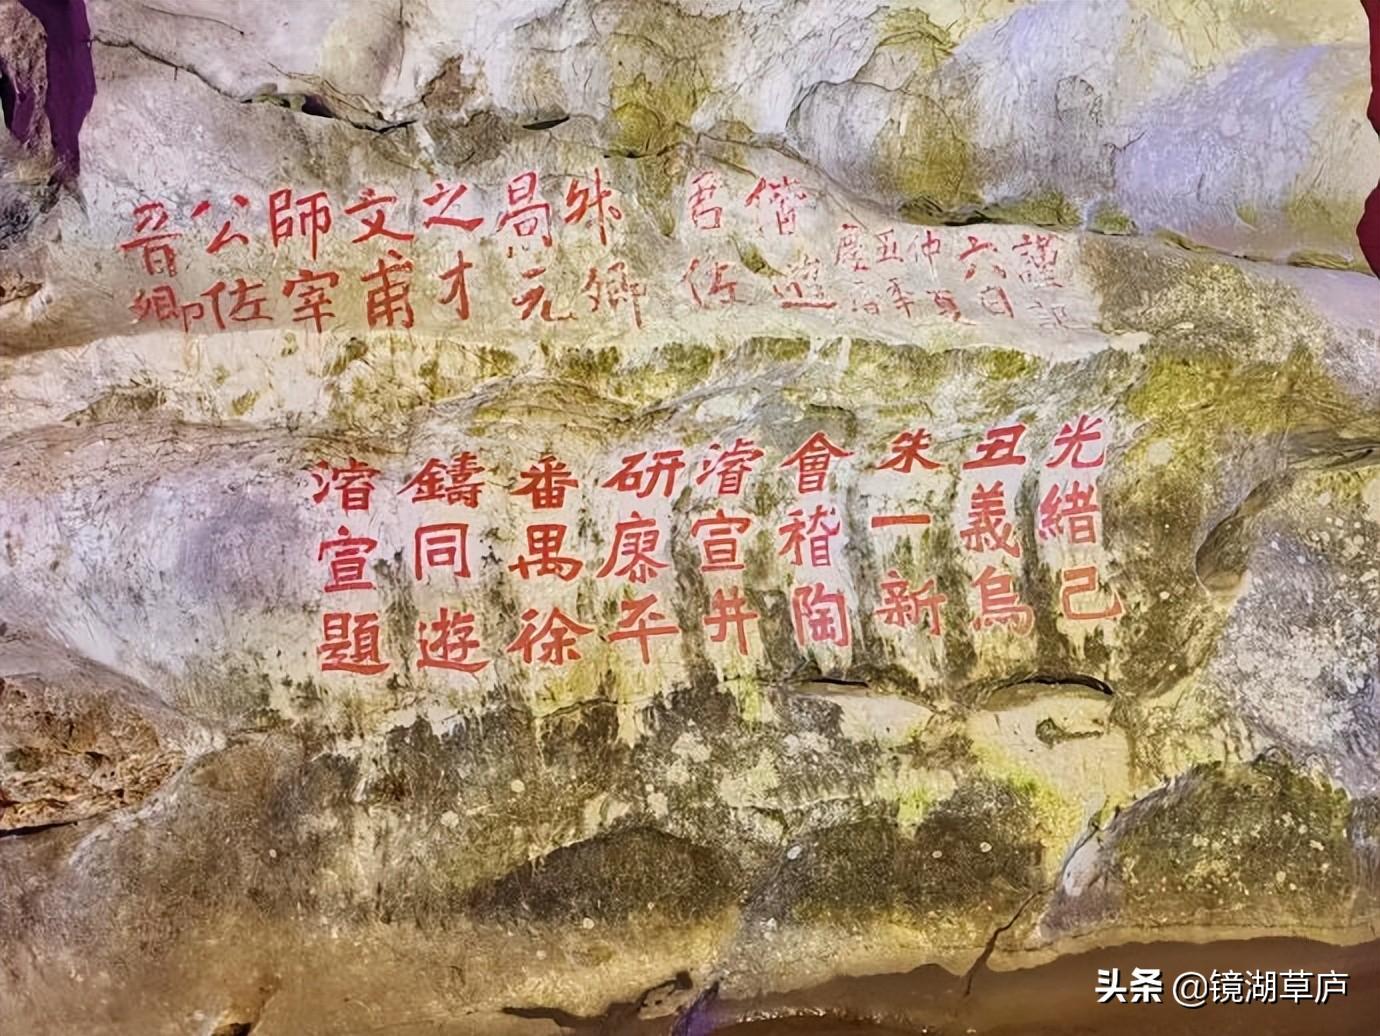 晉卿
公佐
師宰
文甫
之才
元
卿
君佐
偕遊
慶曆
五年
仲夏
六日
謹記
光緒己
丑義烏
朱一新
會稽陶
濬宣井
研廖平
番禺徐
鑄同遊
濬宣題
头条 @镜湖草庐